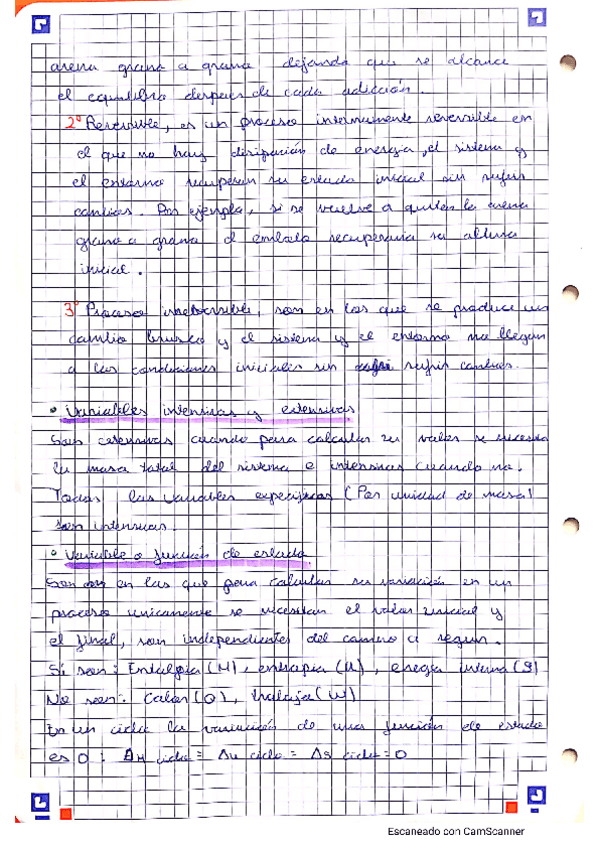 arena grano a grano dejando que se alcance
el equilibrio después de cada adicción.
2º Reversible, es un proceso internamente reversible en
el que no hay disipación de energía, el sistema y
el entorno recuperan su estado inicial sin sufrir
cambios. Por ejemplo, si se vuelve a quitar la arena
grano a grano el embolo recuperaria su altura
inicial.
3º Proceso irreversible, son en los que se produce un
cambio brusco y el sistema y el entorno no llegan
a las condiciones iniciales sin sufrir cambios.
• Variables intensivas y extensivas
Son extensivas cuando para calcular su valor se necesita
la masa total del sistema e intensivas cuando no.
Todas las variables especificas (Por unidad de masa)
son intensivas.
• Variable o función de estado
Son en las que para calcular su variación en un
proceso unicamente se necesitan el valor inicial y
el final, son independientes del camino a seguir.
Si son: Entalpia (H), entropia (U), energia interna (S)
No son: Calor (Q), trabajo (W)
En un ciclo la variación de una función de estado
es 0 : ΔH ciclo = Δu ciclo = ΔS ciclo = 0
Escaneado con CamScanner